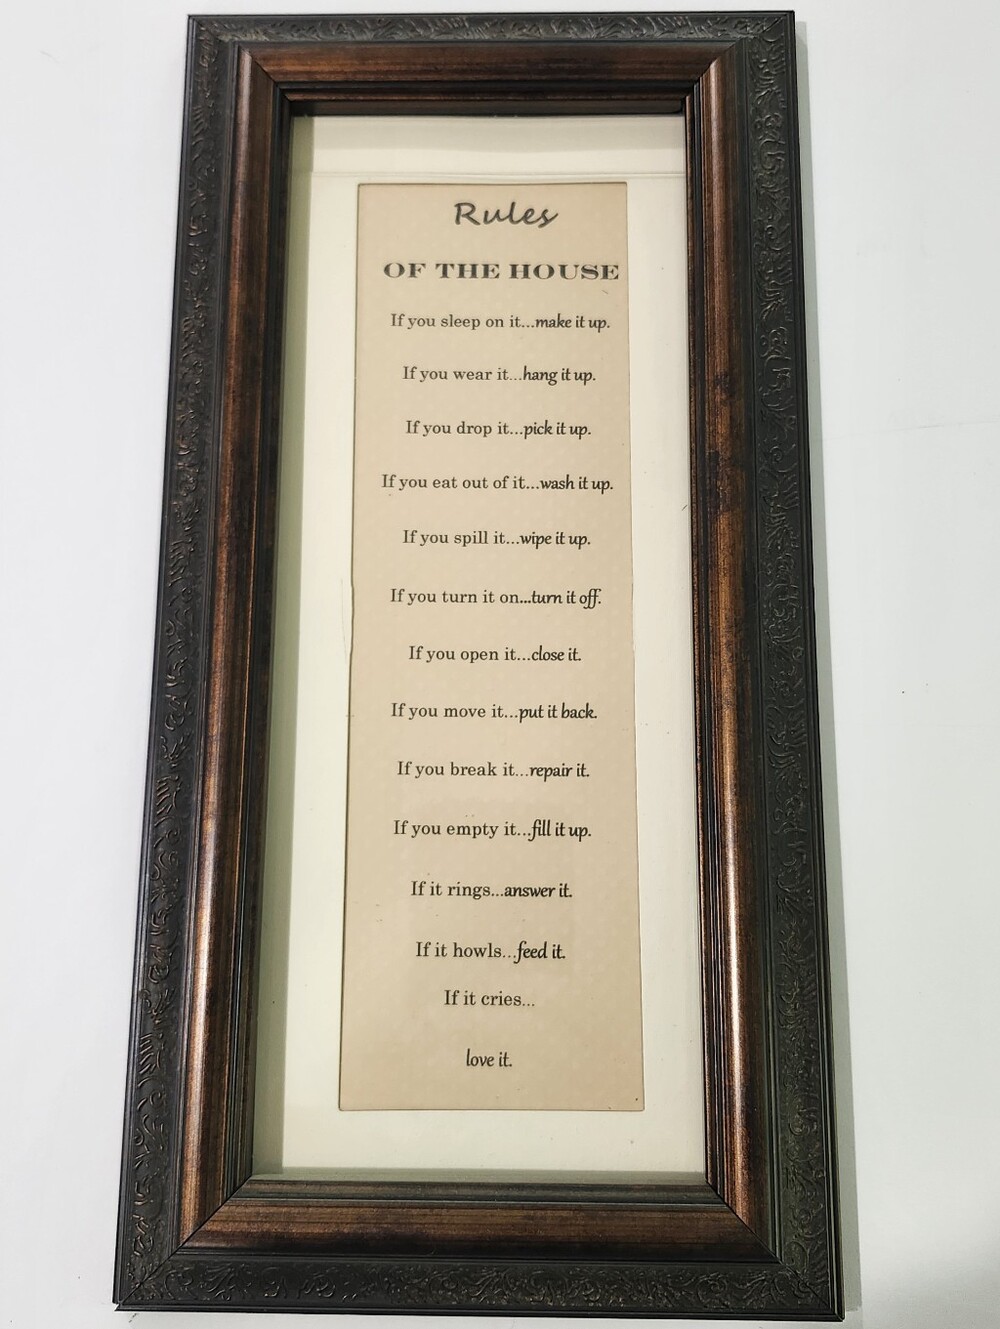 Rules
OF THE HOUSE
If you sleep on it...make it up.
If you wear it...hang it up.
If you drop it...pick it up.
If you eat out of it...wash it up.
If you spill it...wipe it up.
If you turn it on...turn it off.
If you open it...close it.
If you move it...put it back.
If you break it...repair it.
If you empty it...fill it up.
If it rings...answer it.
If it howls...feed it.
If it cries...
love it.